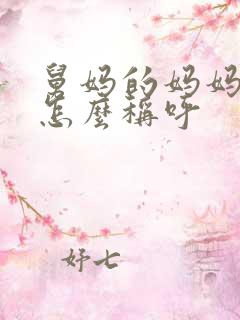 舅妈的妈妈
怎麼稱呼
妤七